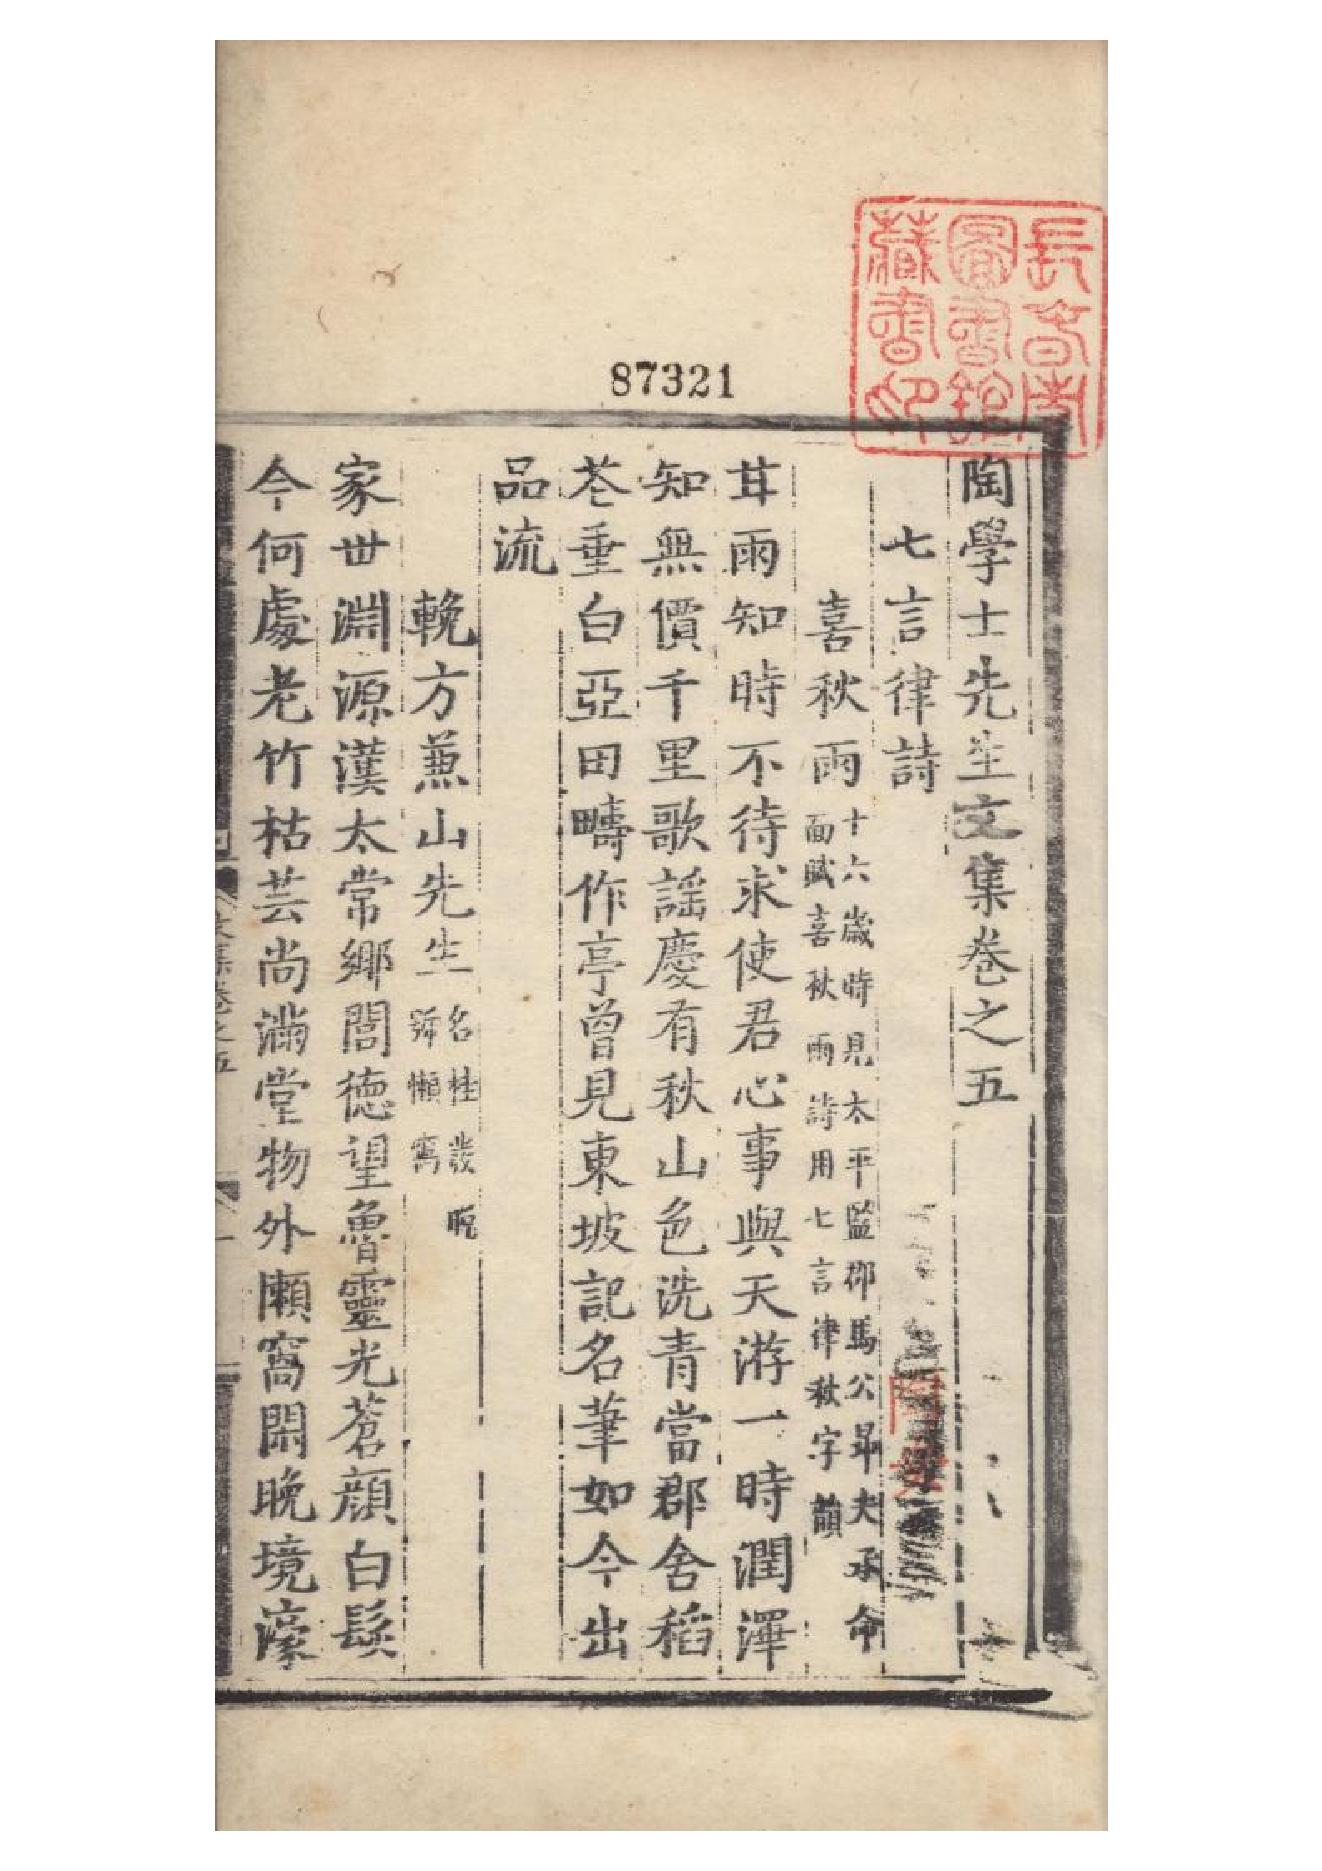 長春市
圖書館
藏書印
87321
陶學士先生文集卷之五
七言律詩
喜秋雨十六歲時見太平監郡馬公昂夫承命面賦喜秋雨詩用七言律秋字韻
甘雨知時不待求使君心事與天游一時潤澤
知無價千里歌謠慶有秋山色洗青當郡舍稻
芲垂白亞田疇作亭曾見東坡記名筆如今出
品流
輓方蒹山先生名桂發晚號懶窩
家世淵源漢太常鄉閭德望魯靈光蒼顔白髮
今何處老竹枯芸尚滿堂物外懶窩閑晚境濠
文集卷之五
一